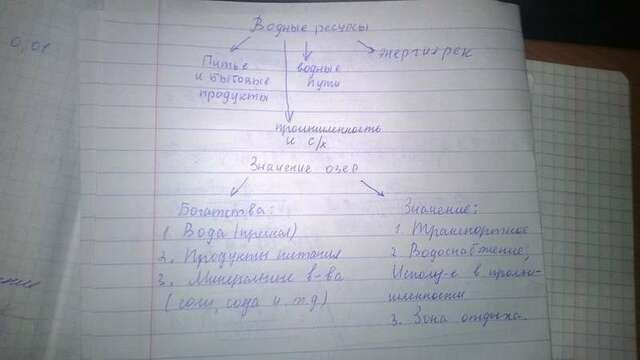 0,01
Водные ресурсы
Питье
и бытовые
продукты
водные
пути
энергия рек
промышленность
и с/х
Значение озер
Богатства:
1. Вода (пресная)
2. Продукты питания
3. Минеральные в-ва
(соли, сода и т.д)
Значение:
1. Транспортное
2. Водоснабжение,
Использ-е в промы-
шленности
3. Зона отдыха.